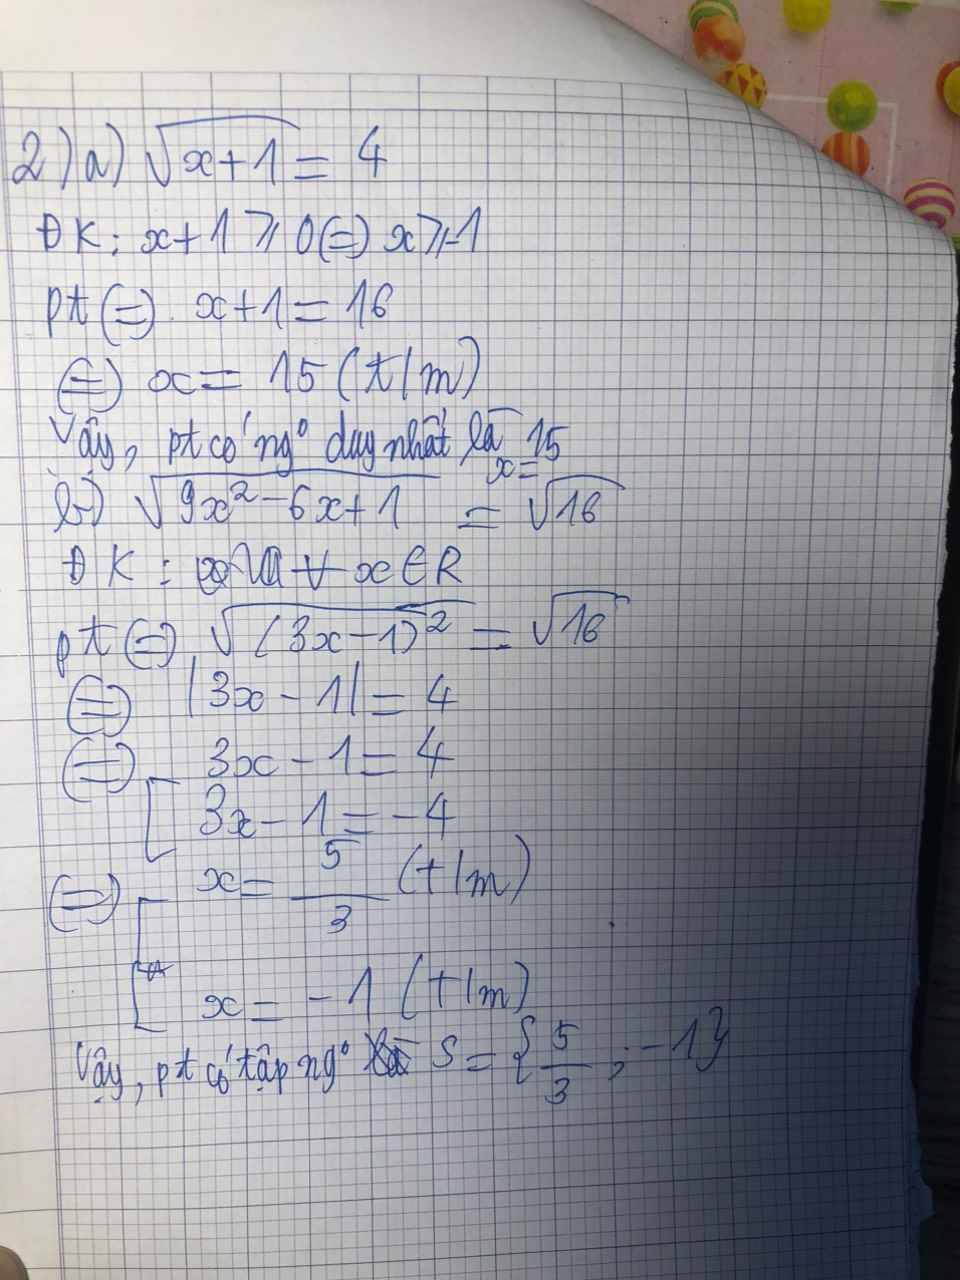 2) a) √(x+1) = 4
ĐK: x+1 ≥ 0 (=) x ≥ -1
pt (=) x+1 = 16
(=) x = 15 (t/m)
Vậy, pt có ng° duy nhất là x = 15
b) √(9x² - 6x + 1) = √16
ĐK: ∀ x ∈ R
pt (=) √((3x-1)²) = √16
(=) |3x - 1| = 4
(=) [ 3x - 1 = 4
3x - 1 = -4
(=) [ x = 5/3 (t/m)
x = -1 (t/m)
Vậy, pt có tập ng° S = {5/3 ; -1}